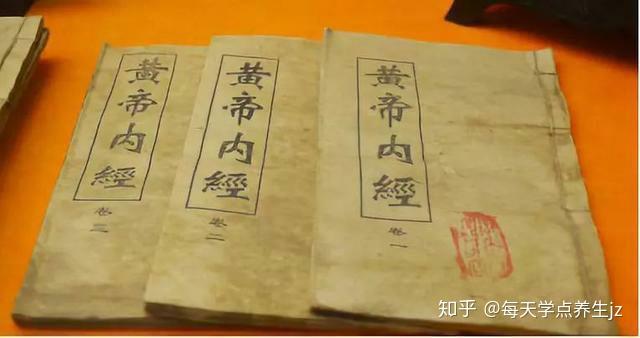 黄帝内經
卷三
黄帝内經
卷二
黄帝内經
卷一
知乎 @每天学点养生jz